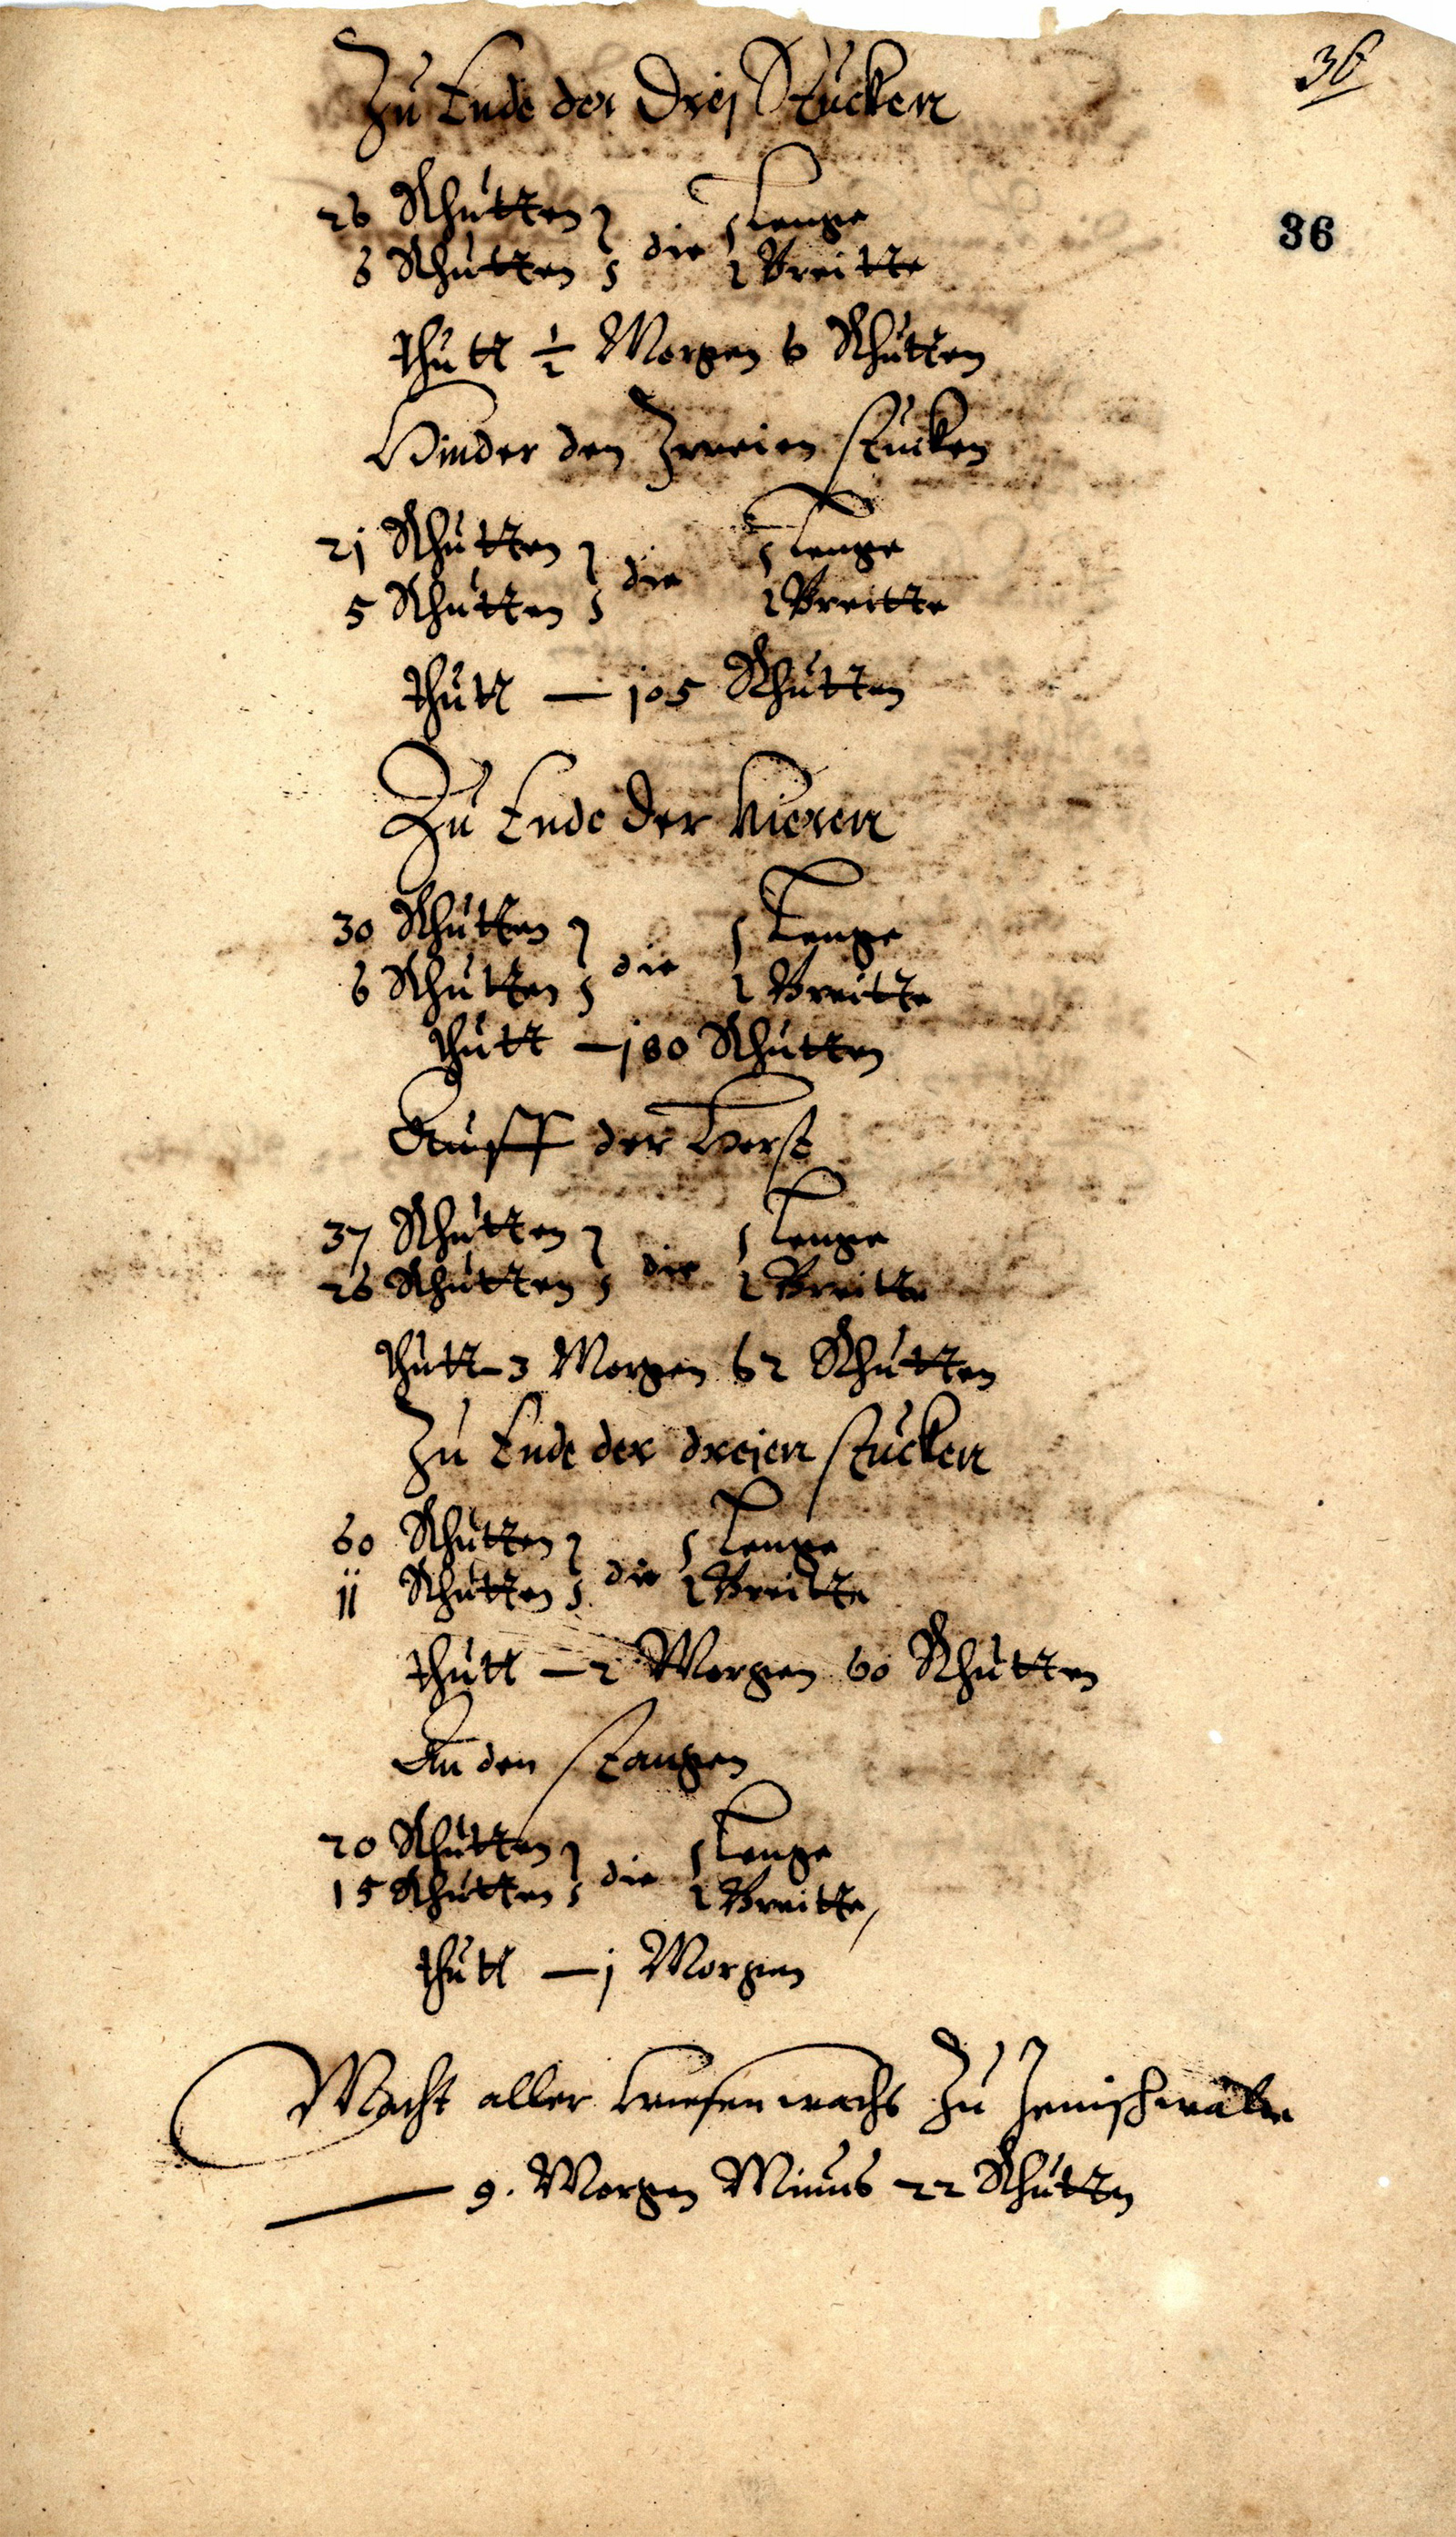 36
Zu Ende der Drej Stucken
36
26 Rhutten } die { Lenge
6 Rhutten } { Breitte
thutt ½ Morgen 6 Rhutten
Hinder den Zweien stucken
21 Rhutten } die { Lenge
5 Rhutten } { Breitte
thutt — 105 Rhutten
Zu Ende der Vieren
30 Rhutten } die { Lenge
6 Rhutten } { Breitte
thutt — 180 Rhutten
Auff der Horst
37 Rhutten } die { Lenge
26 Rhutten } { Breitte
thutt — 3 Morgen 62 Rhutten
Zu Ende der dreien stucken
60 Rhutten } die { Lenge
11 Rhutten } { Breitte
thutt — 2 Morgen 60 Rhutten
An den stangen
20 Rhutten } die { Lenge
15 Rhutten } { Breitte
thutt — 1 Morgen
Macht aller wiesenwachs Zu
— 9. Morgen Minus 22 Rhutten